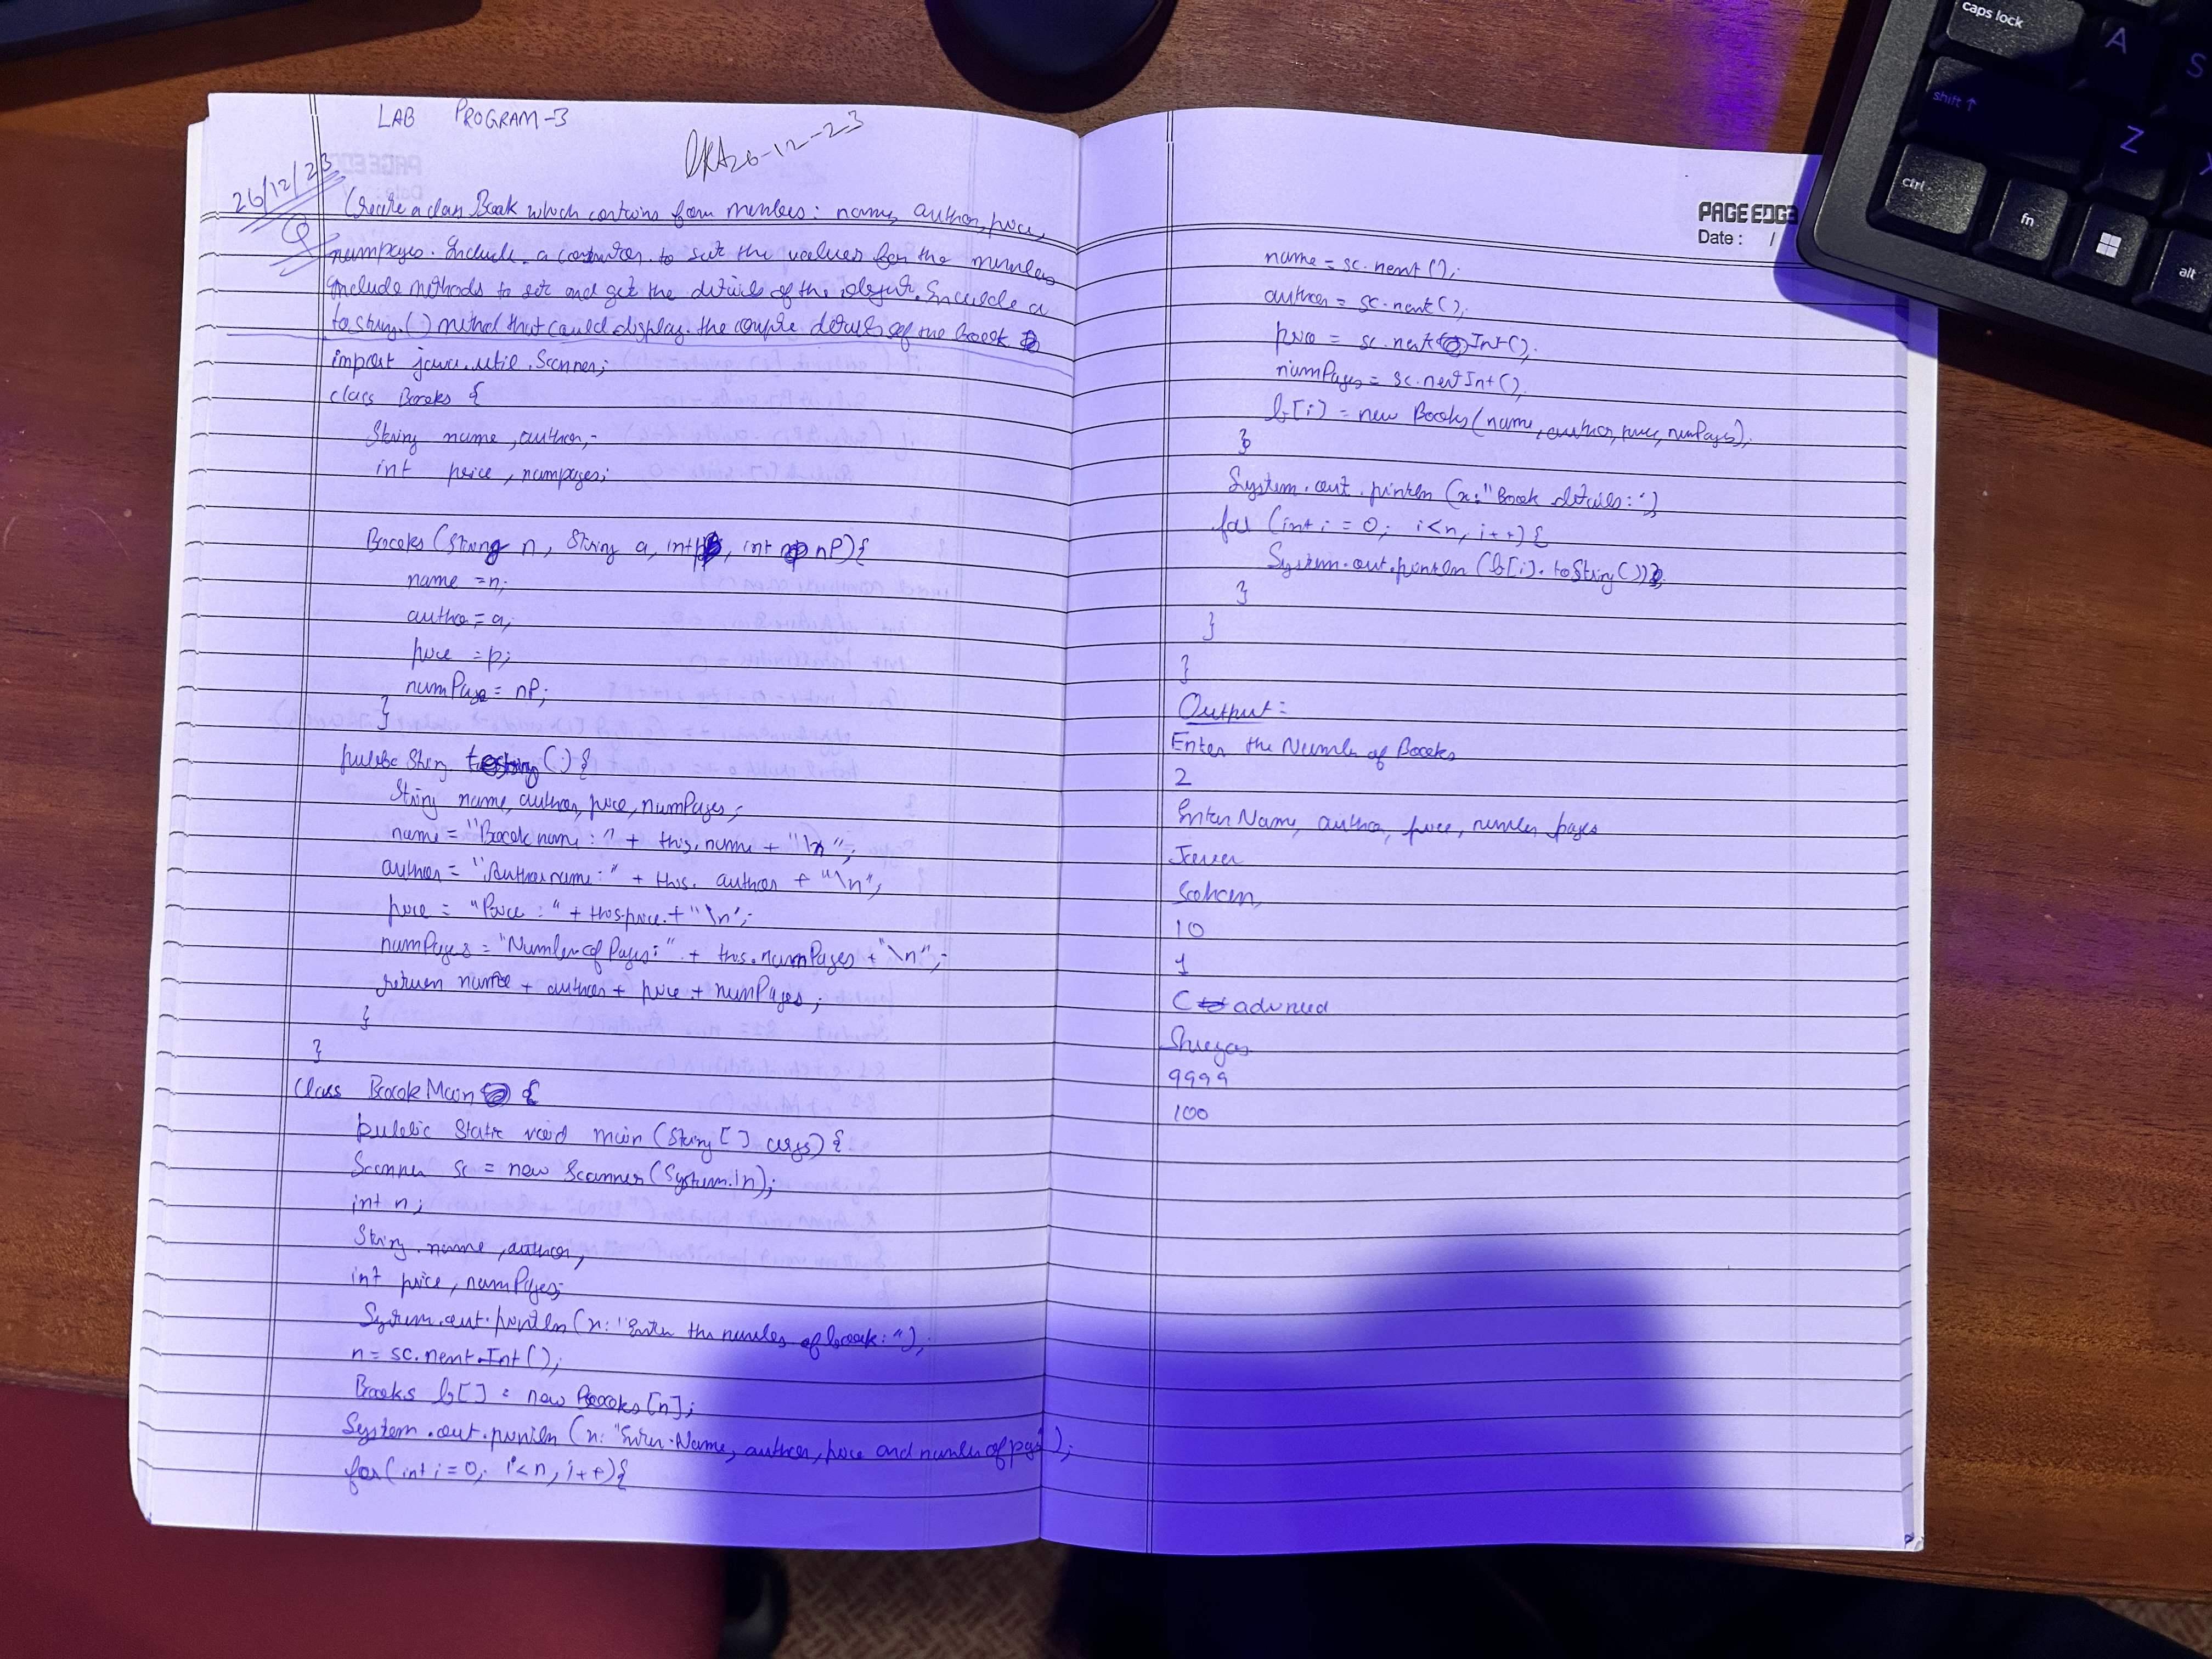 LAB PROGRAM-3
26/12/23
26-12-23
Q Create a class Book which contains four members: name, author, price,
numpages. Include a constructor to set the values for the members
Include methods to set and get the details of the object. Include a
toString() method that could display the complete details of the book
import java.util.Scanner;
class Books {
String name, author;
int price, numpages;
Books (String n, String a, int p, int nP){
name = n;
author = a;
price = p;
numPages = nP;
}
public String toString () {
String name, author, price, numPages;
name = "Book name:" + this.name + "\n";
author = "Author name:" + this.author + "\n";
price = "Price:" + this.price + "\n";
numPages = "Number of Pages:" + this.numPages + "\n";
return name + author + price + numPages;
}
}
class BookMain {
public static void main (String [] args) {
Scanner sc = new Scanner (System.in);
int n;
String name, author;
int price, numPages;
System.out.println (x: "Enter the number of book:");
n = sc.nextInt();
Books b[] = new Books [n];
System.out.println (x: "Enter Name, author, price and number of pages");
for (int i = 0; i < n; i++) {
name = sc.next();
author = sc.next();
price = sc.nextInt();
numPages = sc.nextInt();
b[i] = new Books (name, author, price, numPages);
}
System.out.println (x: "Book details:")
for (int i = 0; i < n; i++) {
System.out.println (b[i].toString());
}
}
}
Output:
Enter the Number of Books
2
Enter Name, author, price, number pages
10
1
C advanced
Shreyas
9999
100
PAGE EDGE
Date: /
ctrl
shift ↑
caps lock
fn
alt
A
Z
S
X